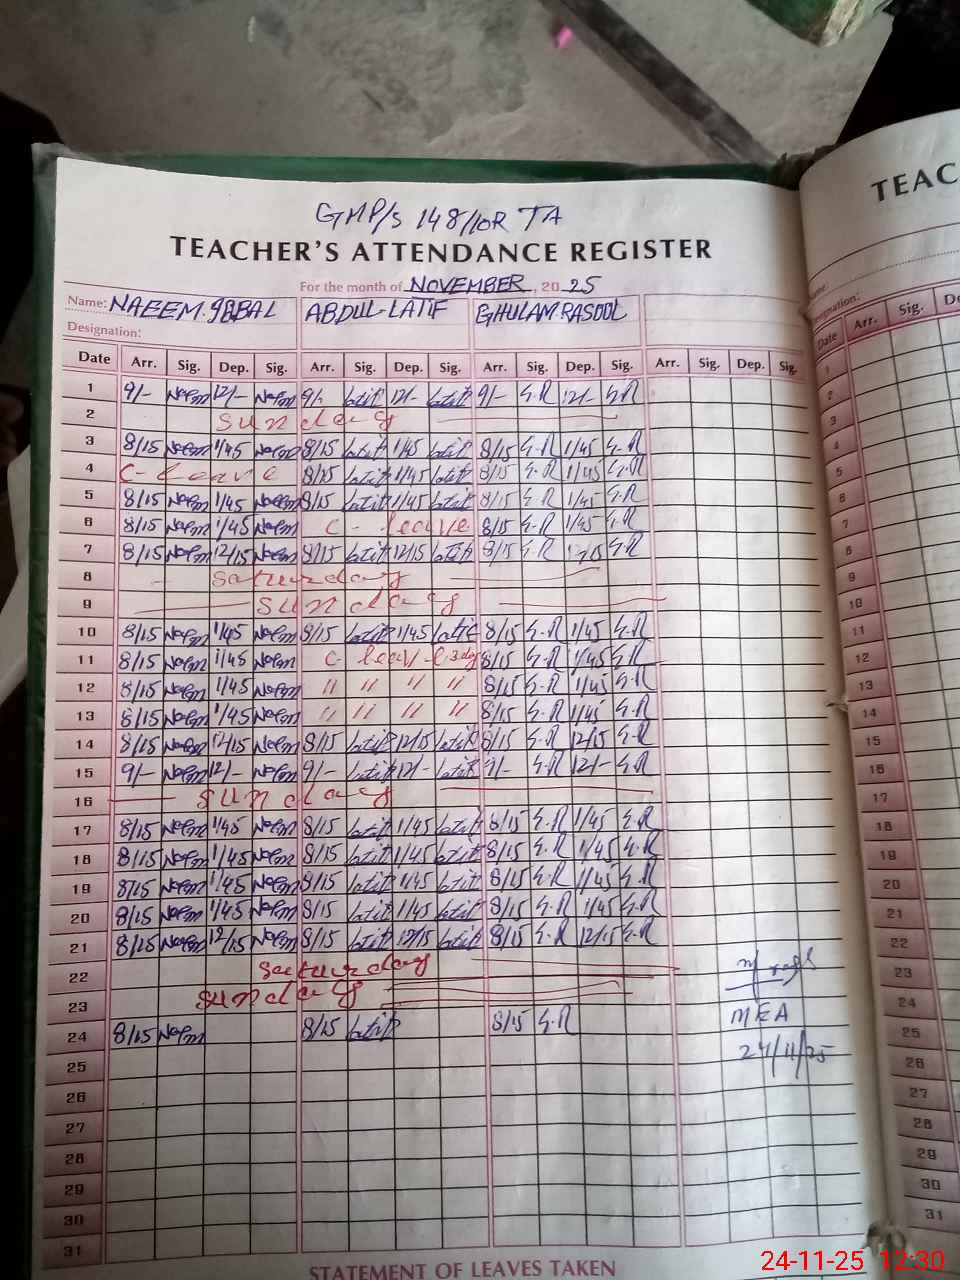 GMP/S 148/10R TA
TEACHER'S ATTENDANCE REGISTER
For the month of NOVEMBER, 20 25
Name: NAEEM.IQBAL ABDUL-LATIF GHULAM.RASOOL
Designation:
Date Arr. Sig. Dep. Sig. Arr. Sig. Dep. Sig. Arr. Sig. Dep. Sig. Arr. Sig. Dep. Sig.
1 9/- Naem 12/- Naem 9/- latif 12/- latif 9/- G.R 12/- G.R
2 Sunday
3 8/15 Naem 1/45 Naem 8/15 latif 1/45 latif 8/15 G.R 1/45 G.R
4 C-leave 8/15 latif 1/45 latif 8/15 G.R 1/45 G.R
5 8/15 Naem 1/45 Naem 8/15 latif 1/45 latif 8/15 G.R 1/45 G.R
6 8/15 Naem 1/45 Naem C-leave 8/15 G.R 1/45 G.R
7 8/15 Naem 12/15 Naem 8/15 latif 12/15 latif 8/15 G.R 12/15 G.R
8 Saturday
9 Sunday
10 8/15 Naem 1/45 Naem 8/15 latif 1/45 latif 8/15 G.R 1/45 G.R
11 8/15 Naem 1/45 Naem C- 8/15 G.R 1/45 G.R
12 8/15 Naem 1/45 Naem " " " " 8/15 G.R 1/45 G.R
13 8/15 Naem 1/45 Naem " " " " 8/15 G.R 1/45 G.R
14 8/15 Naem 12/15 Naem 8/15 latif 12/15 latif 8/15 G.R 12/15 G.R
15 9/- Naem 12/- Naem 9/- latif 12/- latif 9/- G.R 12/- G.R
16 Sunday
17 8/15 Naem 1/45 Naem 8/15 latif 1/45 latif 8/15 G.R 1/45 G.R
18 8/15 Naem 1/45 Naem 8/15 latif 1/45 latif 8/15 G.R 1/45 G.R
19 8/15 Naem 1/45 Naem 8/15 latif 1/45 latif 8/15 G.R 1/45 G.R
20 8/15 Naem 1/45 Naem 8/15 latif 1/45 latif 8/15 G.R 1/45 G.R
21 8/15 Naem 12/15 Naem 8/15 latif 12/15 latif 8/15 G.R 12/15 G.R
22 Saturday
23 Sunday
24 8/15 Naem 8/15 latif 8/15 G.R MEA
25 24/11/25
26
27
28
29
30
31
STATEMENT OF LEAVES TAKEN
TEAC
Name:
Designation:
Date Arr. Sig. De
1
2
3
4
5
6
7
8
9
10
11
12
13
14
15
16
17
18
19
20
21
22
23
24
25
26
27
28
29
30
31
24-11-25 12:30